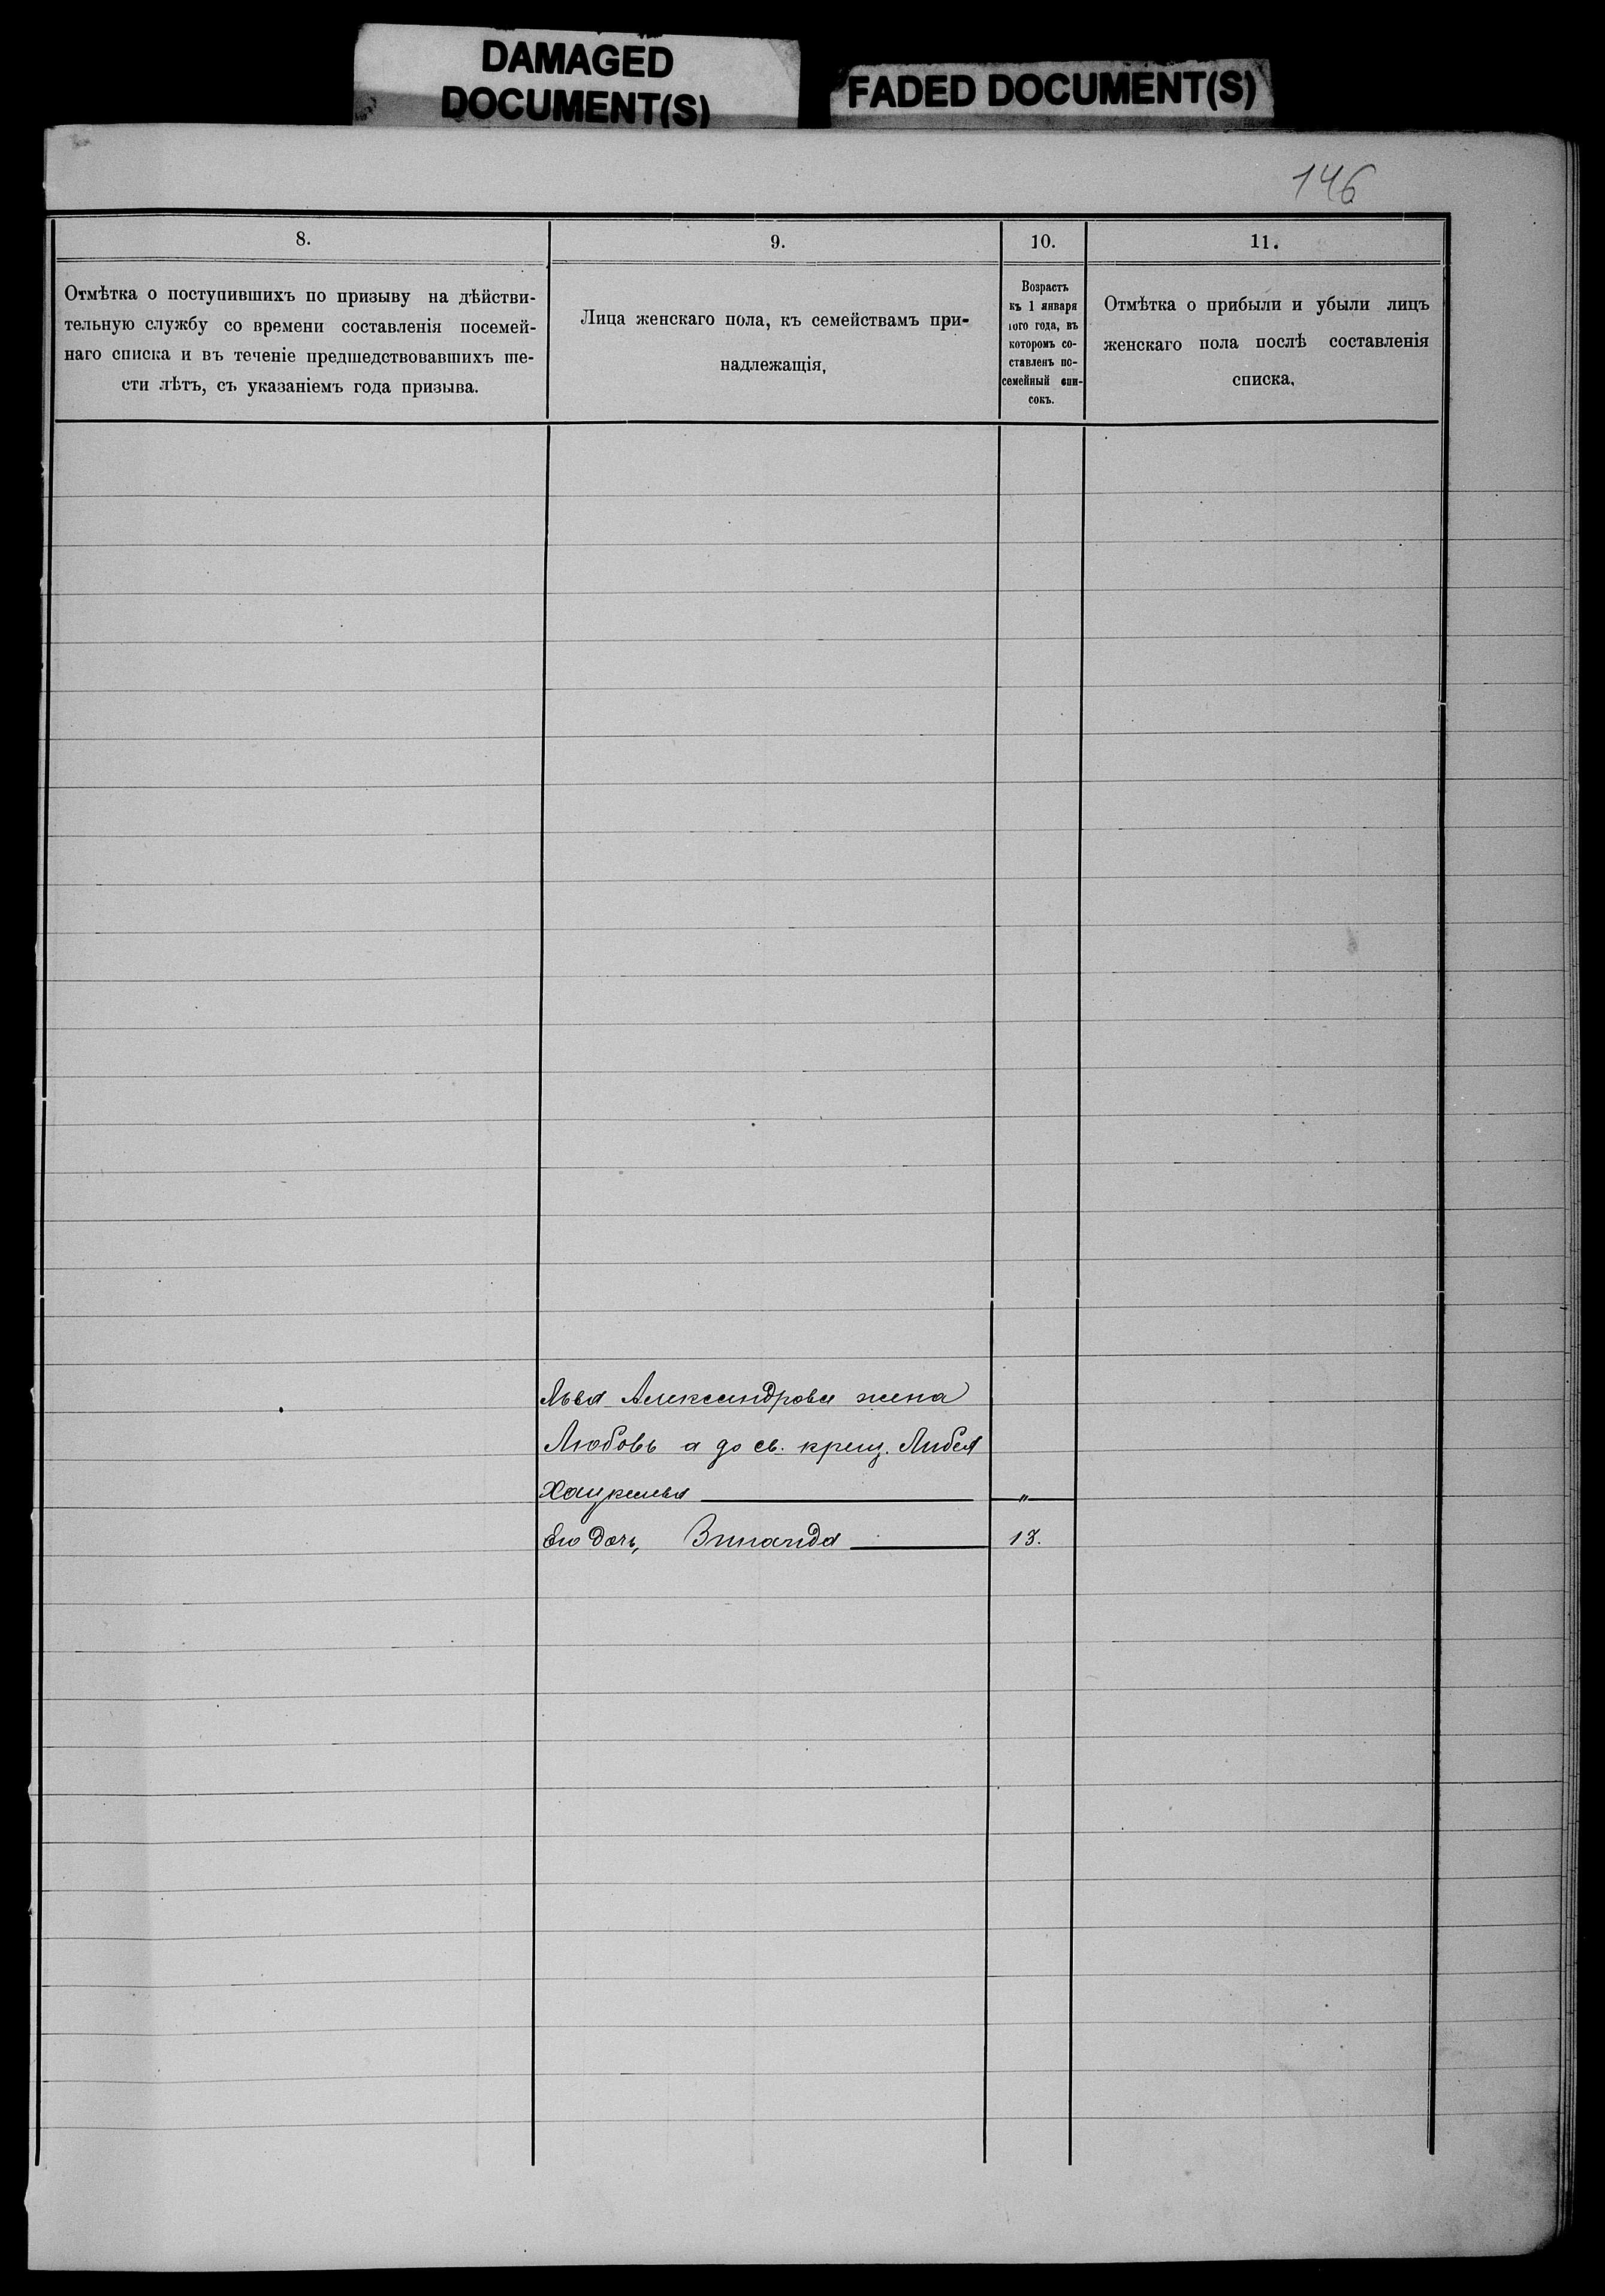 DAMAGED
DOCUMENT(S)
FADED DOCUMENT(S)
146
8.
Отмѣтка о поступившихъ по призыву на дѣйстви-
тельную службу со времени составленія посемей-
наго списка и въ теченіе предшедствовавшихъ ше-
сти лѣтъ, съ указаніемъ года призыва.
9.
Лица женскаго пола, къ семействамъ при-
надлежащія,
10.
Возрастъ
къ 1 января
того года, въ
которомъ со-
ставленъ по-
семейный спи-
сокъ.
11.
Отмѣтка о прибыли и убыли лицъ
женскаго пола послѣ составленія
списка.
Льва Александрова жена
Любовь а до св. крещ. Либа
"
Его дочь, Зинаида 13.